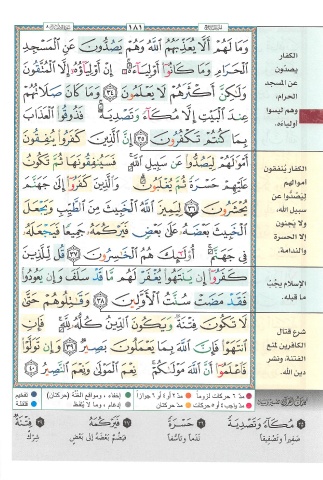 ١٨١
وَمَا لَهُمْ أَلَّا يُعَذِّبَهُمُ ٱللَّهُ وَهُمْ يَصُدُّونَ عَنِ ٱلْمَسْجِدِ
ٱلْحَرَامِ وَمَا كَانُوٓا۟ أَوْلِيَآءَهُۥٓ ۚ إِنْ أَوْلِيَآؤُهُۥٓ إِلَّا ٱلْمُتَّقُونَ
وَلَٰكِنَّ أَكْثَرَهُمْ لَا يَعْلَمُونَ ٣٤ وَمَا كَانَ صَلَاتُهُمْ
عِندَ ٱلْبَيْتِ إِلَّا مُكَآءً وَتَصْدِيَةً ۚ فَذُوقُوا۟ ٱلْعَذَابَ
بِمَا كُنتُمْ تَكْفُرُونَ ٣٥ إِنَّ ٱلَّذِينَ كَفَرُوا۟ يُنفِقُونَ
أَمْوَٰلَهُمْ لِيَصُدُّوا۟ عَن سَبِيلِ ٱللَّهِ ۚ فَسَيُنفِقُونَهَا ثُمَّ تَكُونُ
عَلَيْهِمْ حَسْرَةً ثُمَّ يُغْلَبُونَ ۗ وَٱلَّذِينَ كَفَرُوٓا۟ إِلَىٰ جَهَنَّمَ
يُحْشَرُونَ ٣٦ لِيَمِيزَ ٱللَّهُ ٱلْخَبِيثَ مِنَ ٱلطَّيِّبِ وَيَجْعَلَ
ٱلْخَبِيثَ بَعْضَهُۥ عَلَىٰ بَعْضٍ فَيَرْكُمَهُۥ جَمِيعًا فَيَجْعَلَهُۥ
فِى جَهَنَّمَ ۚ أُو۟لَٰٓئِكَ هُمُ ٱلْخَٰسِرُونَ ٣٧ قُل لِّلَّذِينَ
كَفَرُوٓا۟ إِن يَنتَهُوا۟ يُغْفَرْ لَهُم مَّا قَدْ سَلَفَ وَإِن يَعُودُوا۟
فَقَدْ مَضَتْ سُنَّتُ ٱلْأَوَّلِينَ ٣٨ وَقَٰتِلُوهُمْ حَتَّىٰ
لَا تَكُونَ فِتْنَةٌ وَيَكُونَ ٱلدِّينُ كُلُّهُۥ لِلَّهِ ۚ فَإِنِ
ٱنتَهَوْا۟ فَإِنَّ ٱللَّهَ بِمَا يَعْمَلُونَ بَصِيرٌ ٣٩ وَإِن تَوَلَّوْا۟
فَٱعْلَمُوٓا۟ أَنَّ ٱللَّهَ مَوْلَىٰكُمْ ۚ نِعْمَ ٱلْمَوْلَىٰ وَنِعْمَ ٱلنَّصِيرُ ٤٠
الكفار
يصدّون
عن المسجد
الحرام،
وهم ليسوا
أولياءه.
الكفار يُنفقون
أموالهم
ليَصدّوا عن
سبيل الله،
ولا يجنون
إلا الحسرة
والندامة.
الإسلام يجُبّ
ما قبله.
شرع قتال
الكافرين لمنع
الفتنة ونشر
دين الله.
مدّ ٦ حركات لزوماً
مدّ ٢ أو ٤ أو ٦ جوازاً
إخفاء، ومواقع الغُنّة (حركتان)
تفخيم
مدّ واجب ٤ أو ٥ حركات
مدّ حركتان
إدغام، وما لا يُلفظ
قلقلة
٣٥ مُكَآءً وَتَصْدِيَةً
صَفِيراً وَتَصْفِيقاً
٣٦ حَسْرَةً
نَدَماً وَتَأَسُّفاً
٣٧ فَيَرْكُمَهُ
فَيَضُمَّ بَعْضَهُ إِلَى بَعْضٍ
٣٩ فِتْنَةٌ
شِرْكٌ